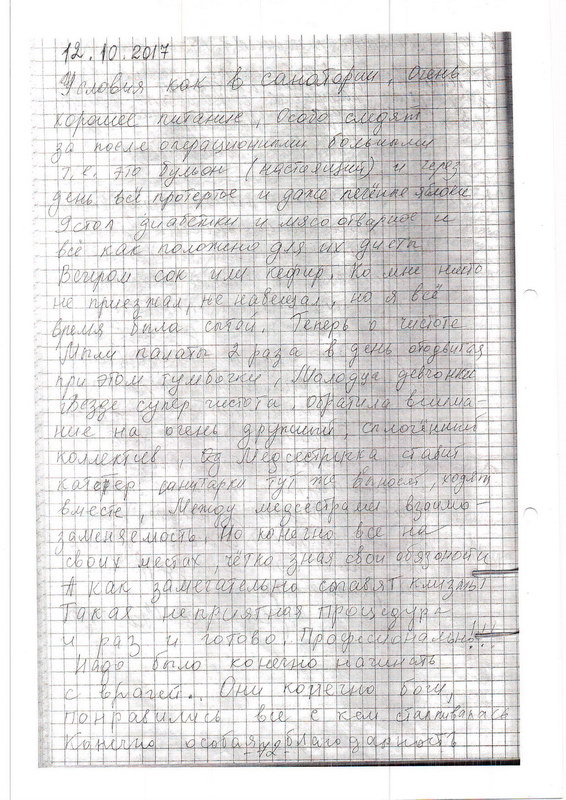 12.10.2017
Условия как в санатории, очень
хорошее питание, Особо следят
за после операционными больными
т.е. это бульон (настаящий) и через
день всё протертое и даже печёные яблоки
9 стол диабетики и мясо отварное и
всё как положено для их диеты
Вечером сок или кефир. Ко мне никто
не приезжал, не навещал, но я всё
время была сытай. Теперь о чистоте
Мыли палаты 2 раза в день отодвигая
при этом тумбочки, Молодца девчонки
Везде супер чистота, обратила внима-
ние на очень дружный, сплочённый
коллектив, Медсестричка ставит
катетер санитарки тут же выносят, ходят
вместе, Между медсёстрами взаимо-
заменяемость. Но конечно все на
своих местах, чётко зная свои обязоности
А как замечательно ставят клизмы
Такая неприятная процедура
и раз и готово. Професионально!!!
Надо было конечно начинать
с врачей.. Они конечно боги,
понравились все с кем сталкивалась
Канечно особая благодарность
- 72 -